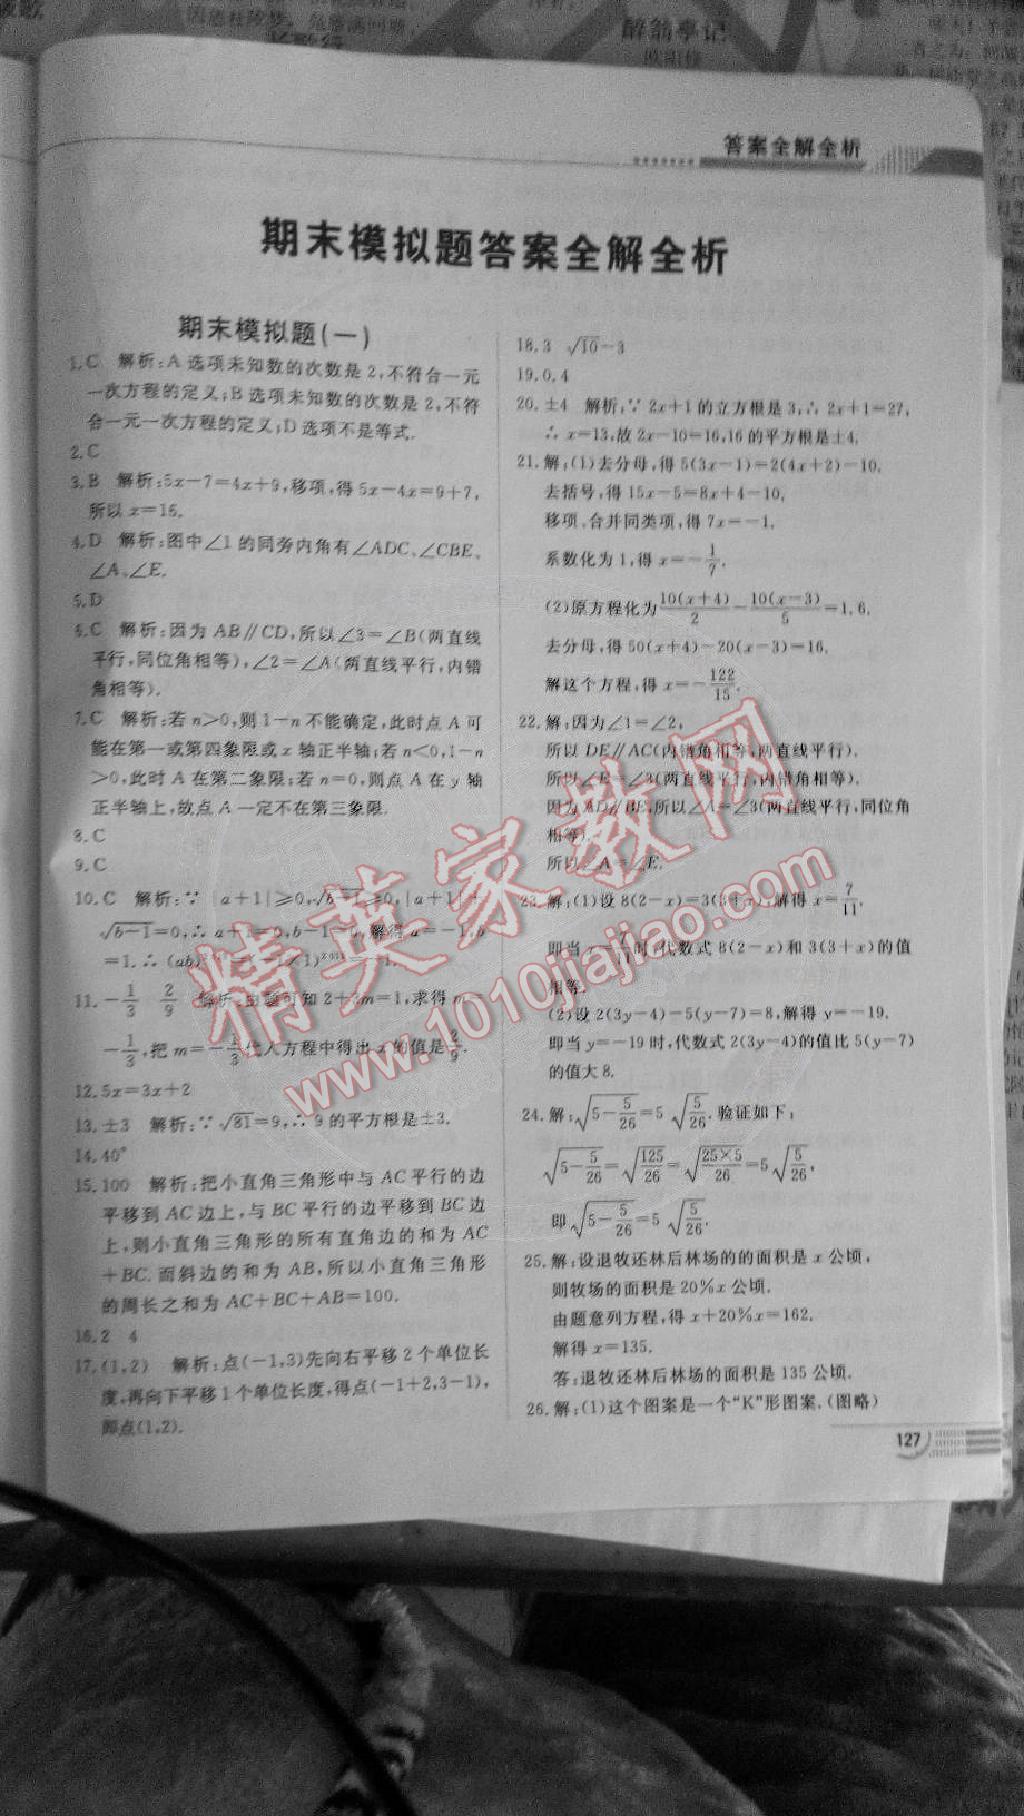 醉翁亭记
答案全解全析
期末模拟题答案全解全析
期末模拟题(一)
1.C 解析:A 选项未知数的次数是 2,不符合一元
一次方程的定义;B 选项未知数的次数是 2,不符
合一元一次方程的定义;D 选项不是等式.
2.C
3.B 解析:5x-7=4x+9,移项,得 5x-4x=9+7,
所以 x=16.
4.D 解析:图中∠1 的同旁内角有∠ADC、∠CBE、
∠A、∠E.
5.D
6.C 解析:因为 AB∥CD,所以∠3=∠B(两直线
平行,同位角相等),∠2=∠A(两直线平行,内错
角相等).
7.C 解析:若 n>0,则 1-n 不能确定,此时点 A 可
能在第一或第四象限或 x 轴正半轴;若 n<0,1-n
>0,此时 A 在第二象限;若 n=0,则点 A 在 y 轴
正半轴上,故点 A 一定不在第三象限.
8.C
9.C
10.C 解析:∵ |a+1|≥0,√(b-1)≥0,|a+1|+
√(b-1)=0,∴ a+1=0,b-1=0,解得 a=-1,b
=1.∴ (ab)
11.-1/3 2/9 解析:由题可知 2+3m=1,求得 m=
-1/3,把 m=-1/3代入方程中得出 x 的值是2/9.
12.5x=3x+2
13.±3 解析:∵ √81=9,∴ 9 的平方根是±3.
14.40°
15.100 解析:把小直角三角形中与 AC 平行的边
平移到 AC 边上,与 BC 平行的边平移到 BC 边
上,则小直角三角形的所有直角边的和为 AC
+BC.而斜边的和为 AB,所以小直角三角形
的周长之和为 AC+BC+AB=100.
16.2 4
17.(1,2) 解析:点(-1,3)先向右平移 2 个单位长
度,再向下平移 1 个单位长度,得点(-1+2,3-1),
即点(1,2).
18.3 √10-3
19.0,4
20.±4 解析:∵ 2x+1 的立方根是 3,∴ 2x+1=27,
∴ x=13,故 2x-10=16,16 的平方根是±4.
21.解:(1)去分母,得 5(3x-1)=2(4x+2)-10.
去括号,得 15x-5=8x+4-10,
移项、合并同类项,得 7x=-1,
系数化为 1,得 x=-1/7.
(2)原方程化为10(x+4)/2-10(x-3)/5=1.6.
去分母,得 50(x+4)-20(x-3)=16.
解这个方程,得 x=-122/15.
22.解:因为∠1=∠2,
所以 DE∥AC(内错角相等,两直线平行).
所以∠E=∠3(两直线平行,内错角相等).
因为 AD∥BE,所以∠A=∠3(两直线平行,同位角
相等).
所以∠A=∠E.
23.解:(1)设 8(2-x)=3(3+x),解得 x=7/11.
即当 x=7/11时,代数式 8(2-x)和 3(3+x)的值
相等.
(2)设 2(3y-4)-5(y-7)=8,解得 y=-19.
即当 y=-19 时,代数式 2(3y-4)的值比 5(y-7)
的值大 8.
24.解:√(5-5/26)=5√(5/26).验证如下:
√(5-5/26)=√(125/26)=√(25×5/26)=5√(5/26),
即√(5-5/26)=5√(5/26).
25.解:设退牧还林后林场的的面积是 x 公顷,
则牧场的面积是 20%x 公顷.
由题意列方程,得 x+20%x=162.
解得 x=135.
答:退牧还林后林场的面积是 135 公顷.
26.解:(1)这个图案是一个“K”形图案.(图略)
127
精英家教网
www.1010jiajiao.com